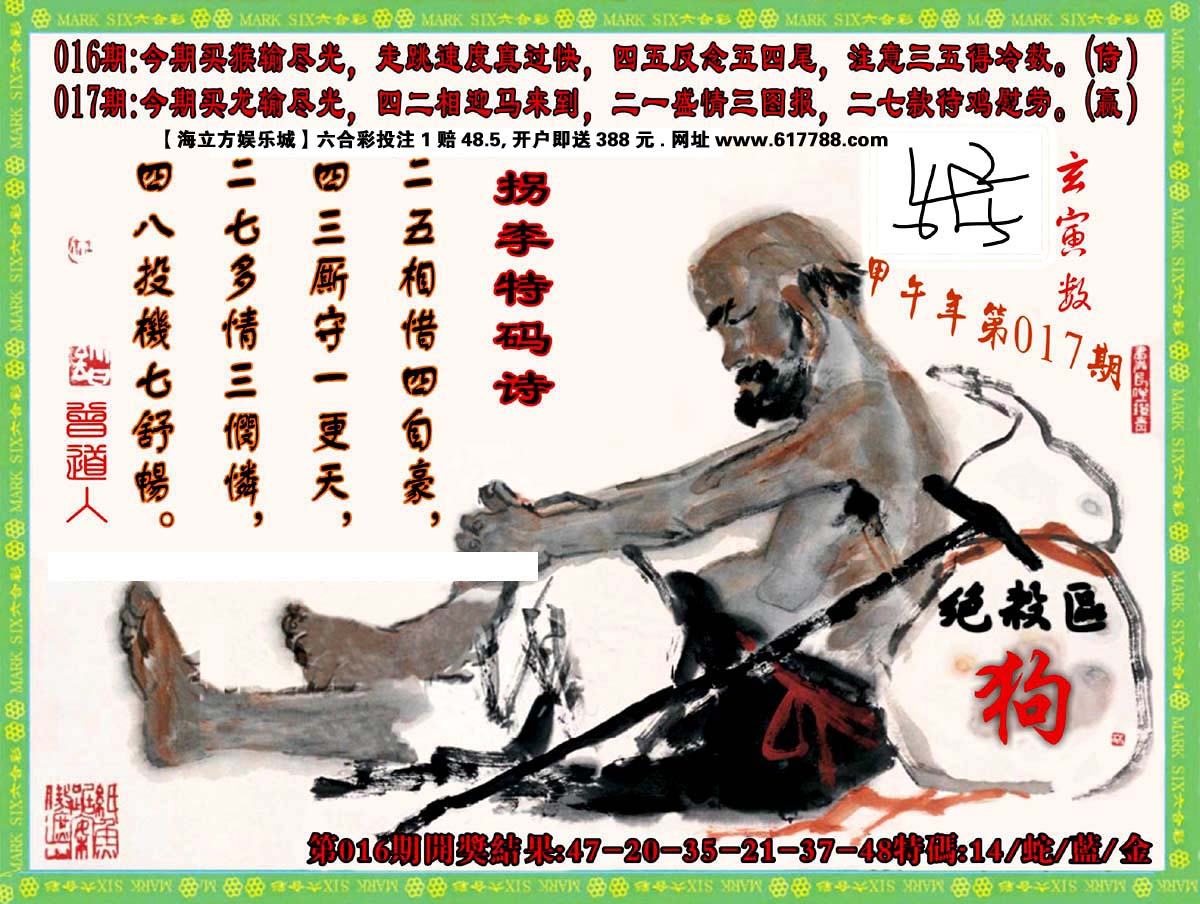 MARK SIX六合彩 MARK SIX六合彩 MARK SIX六合彩 MARK SIX六合彩 MARK SIX六合彩 MARK SIX六合彩 MARK SIX六合彩
016期:今期买猴输尽光，走跳速度真过快，四五反念五四尾，注意三五得冷数。(侍)
017期:今期买龙输尽光，四二相迎马来到，二一盛情三图报，二七款待鸡慰劳。(赢)
【海立方娱乐城】六合彩投注 1 赔 48.5, 开户即送 388 元 . 网址 www.617788.com
玄寅数
甲午年第017期
拐李特码诗
二五相惜四自豪，
四三厮守一更天，
二七多情三憫憐，
四八投機七舒暢。
曾道人
绝杀区
狗
第016期開獎結果:47-20-35-21-37-48特碼:14/蛇/藍/金